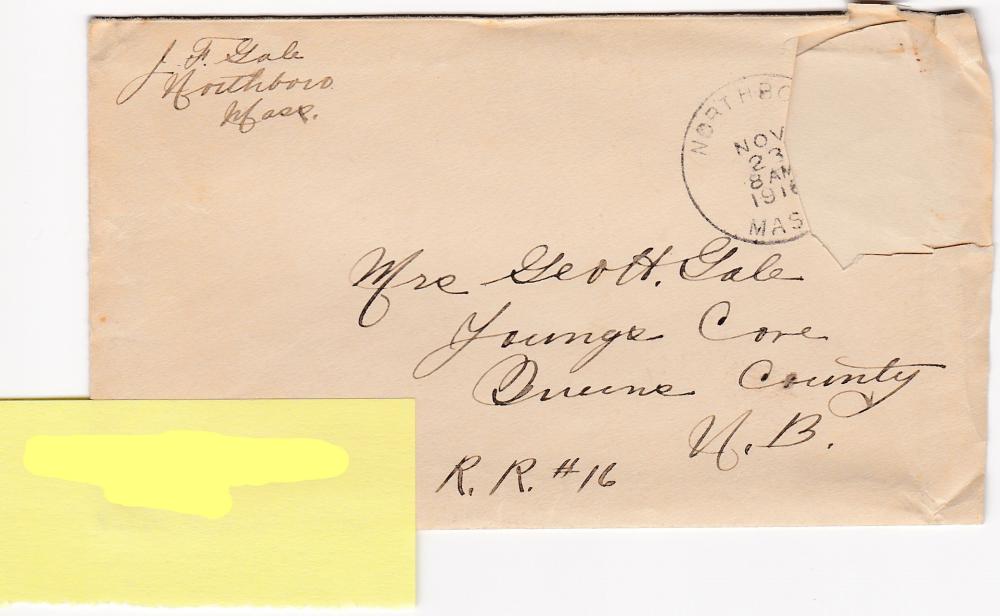 J. F. Gale
Northboro
Mass.
NORTHBO
NOV
23
8 AM
191
MAS
Mrs Geo H. Gale
Youngs Cove
Queens County
N. B.
R. R. #16